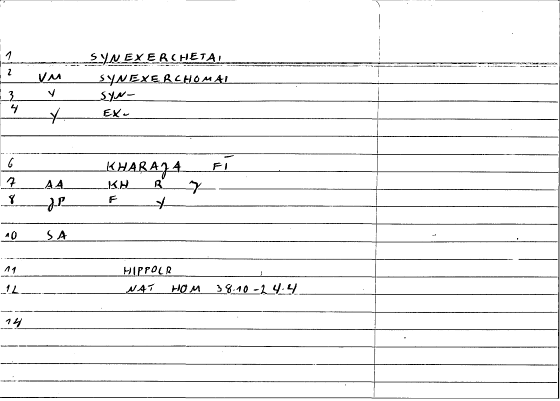 1 SYNEXERCHETAI
2 VM SYNEXERCHOMAI
3 V SYN-
4 Y EX-
6 KHARAJA FĪ
7 AA KH R J
8 JP F Y
10 SA
11 HIPPOCR
12 NAT HOM 38.10-24.4
14